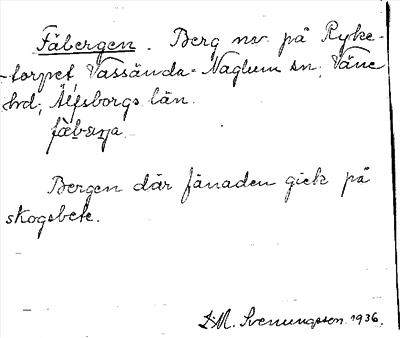 Fäbergen. Berg nv. på Ryke-
-torpet, Vassända-Naglum sn, Väne
hd, Älfsborgs län.
Bergen där fänaden gick på
skogsbete.
S.M. Svenungsson 1936.